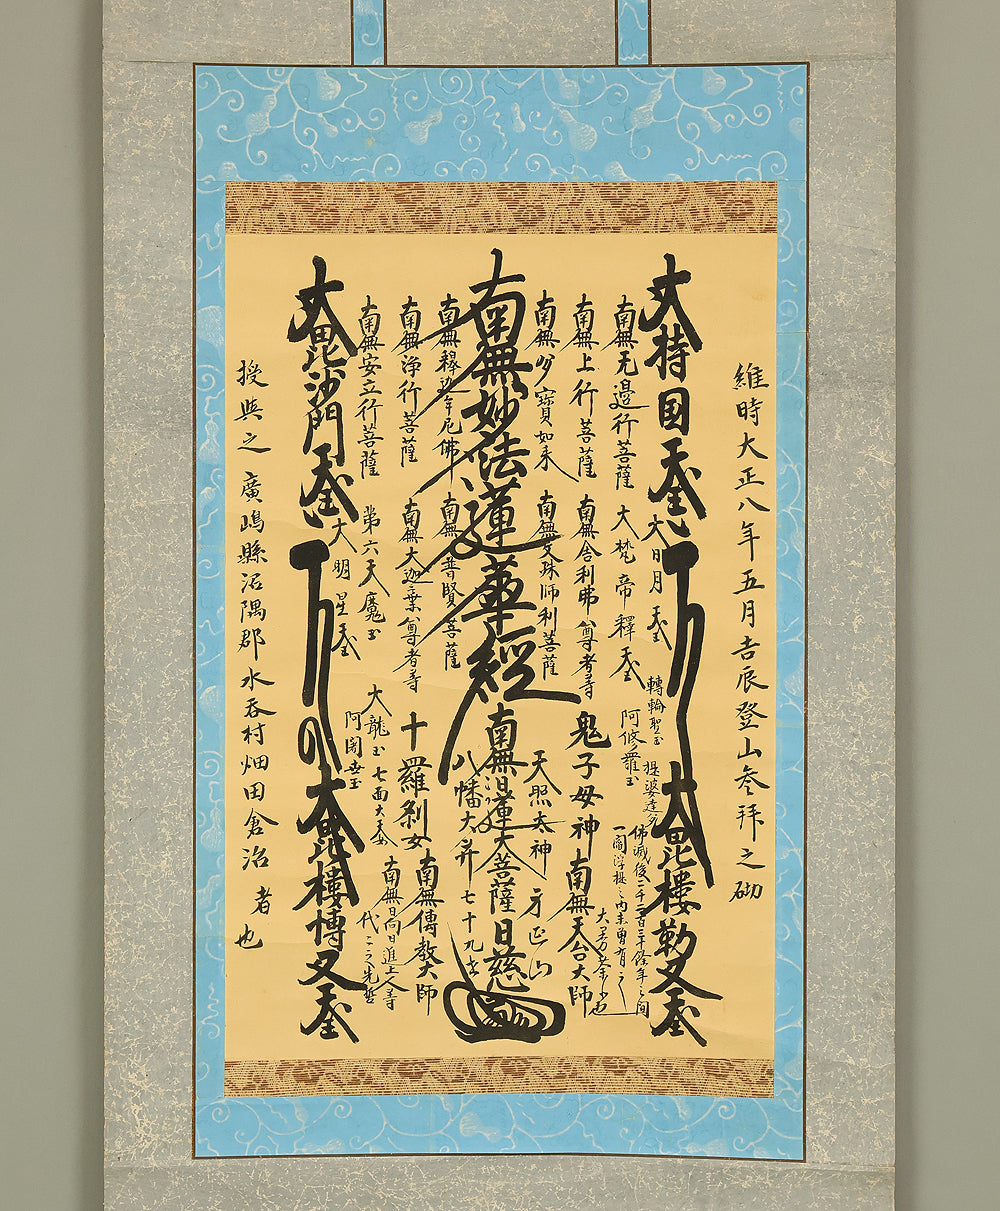 維時大正八年五月吉辰登山參拜之砌
大持国天王
大毘楼勒叉天王
大日月天王
轉輪聖王
提婆達多
南無无邊行菩薩
大梵帝釋天王
阿修羅王
佛滅後二千二百三十餘年之間
一閻浮提之内未曾有之
大曼荼羅也
南無上行菩薩
南無舎利弗尊者等
鬼子母神
南無天台大師
南無多寶如来
南無文珠師利菩薩
天照太神
身延山
南無妙法蓮華經
南無日蓮大菩薩
日慈
八幡大菩薩
七十九世
南無釋迦牟尼佛
南無普賢菩薩
十羅刹女
南無傳教大師
南無浄行菩薩
南無大迦葉尊者等
大龍王
七面大天女
南無日向日進上人等
代々之先哲
南無安立行菩薩
第六天魔王
阿闍世王
大明星天王
大毘沙門天王
大毘楼博叉天王
授與之 廣嶋縣沼隅郡水呑村畑田倉治者也